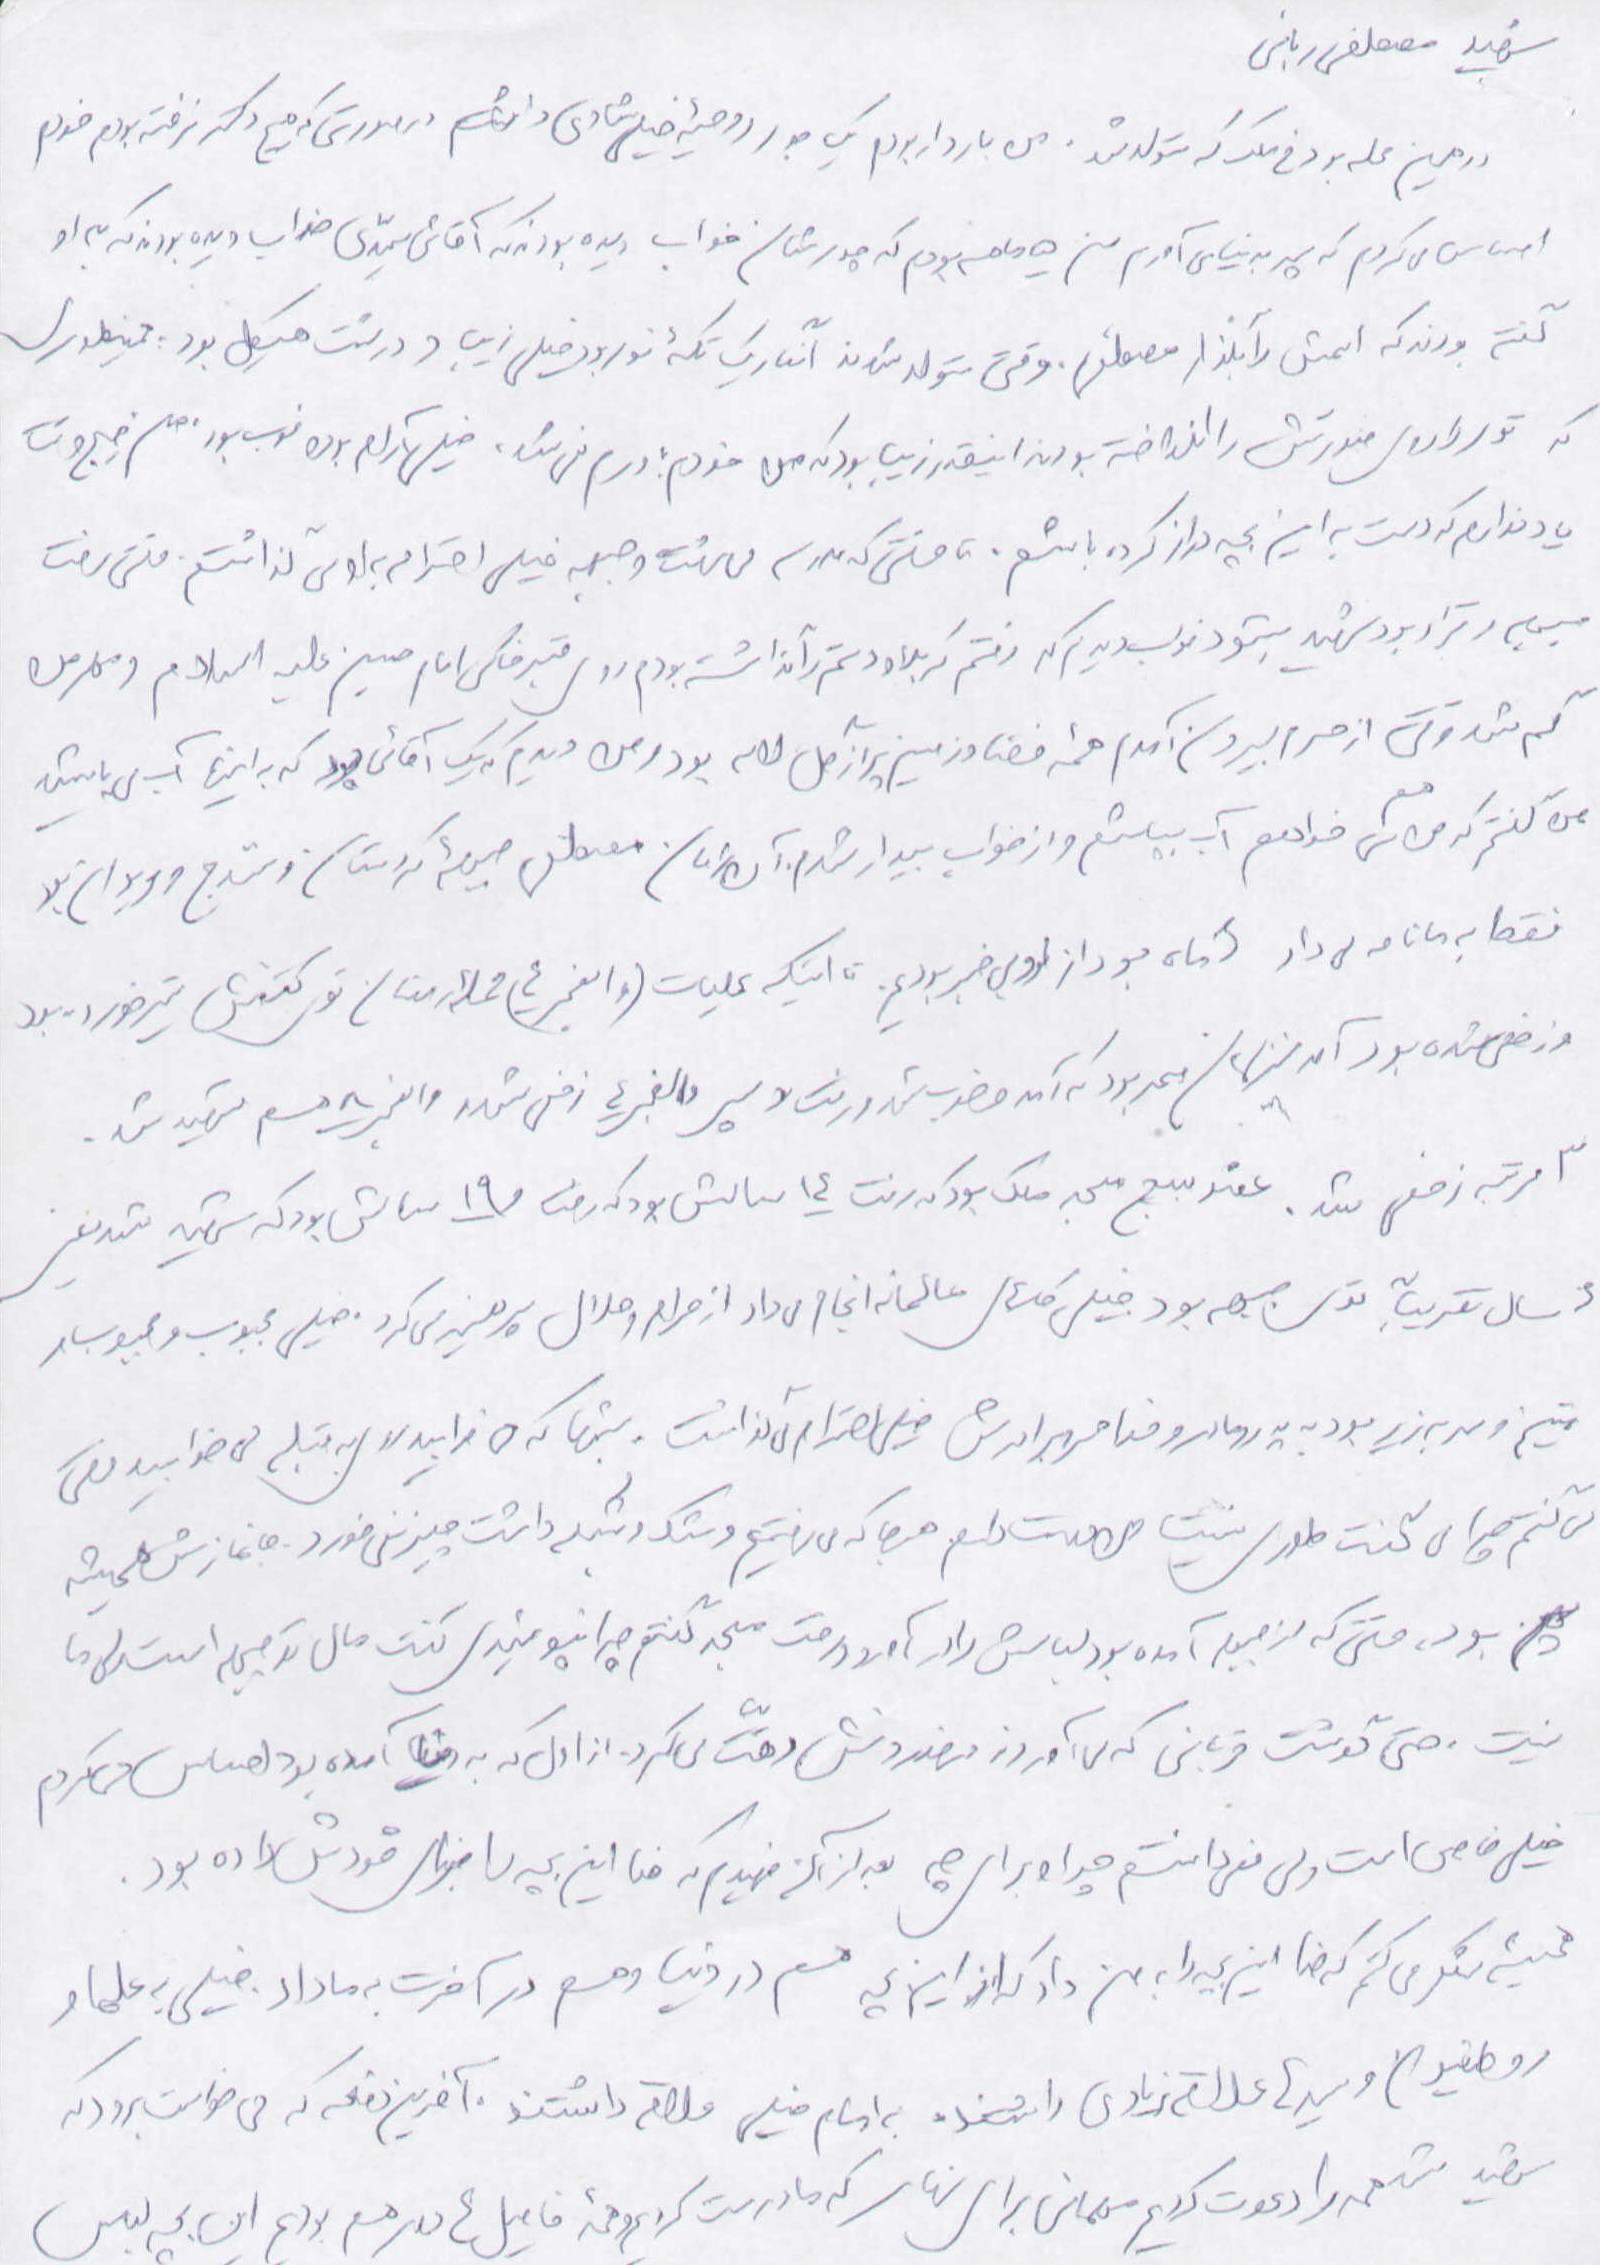 شهید مصطفی ربانی
در همین محله بود فخ ملک که متولد شد. من باردار بودم یک جور روحیهٔ خیلی شادی داشتم در صورتی که هیچ دکتر نرفته بودم خودم
احساس می کردم که پسر به دنیا می آورم من ماهه بودم که پدرشان خواب دیده بودند که آقای سیدی خواب دیده بودند که به او
گفته بودند که اسمش را بگذار مصطفی. وقتی متولد شدند آنقدر یک تکهٔ نور بود خیلی زیبا و درشت هیکل بود. همینطوری
که توری روی صورتش را انداخته بودند اینقدر زیبا بود که من خودم باورم نمی شد. خیلی آرام بود خوب بود. من هیچ وقت
یاد ندارم که دست به این بچه دراز کرده باشم. تا وقتی که مدرسه می رفت و جبهه خیلی احترام به او می گذاشتم. وقتی رفت
جبهه و قرار بود شهید بشود خواب دیدم که رفتم کربلا و دستم را گذاشته بودم روی قبر خاکی امام حسین علیه السلام و مهر من
گم شد وقتی از حرم بیرون آمدم همهٔ فضا و زمین پر از گل لاله بود و من دیدم که یک آقائی بود که به اینها آب می پاشید
من گفتم که من هم می خواهم آب بپاشم و از خواب بیدار شدم. آن زمان مصطفی جبههٔ کردستان و سنندج و مریوان بود
فقط به ما نامه می داد ۶ ماه بود از او بی خبر بودیم. تا اینکه عملیات (والفجر ۴) ماه رمضان توی کتفش تیر خورده بود
و زخمی شده بود آمد بود که آمد خوب شد و رفت والفجر ۴ زخمی شد و والفجر ۸ هم شهید شد.
۳ مرتبه زخمی شد. عضو بسیج مسجد ملک بود که رفت ۱۴ سالش بود که رفت و ۱۹ سالش بود که شهید شد یعنی
۶ سال تقریباً توی جبهه بود خیلی کارهای عالمانه انجام می داد از حرام و حلال پرهیز می کرد. خیلی محبوب و محجوب بسیار
متین و سر به زیر بود به پدر و مادر و خواهر و برادرش خیلی احترام می گذاشت. شبها که می خوابید رو به قبله می خوابید وقتی
می گفتم چرا می گفت طوری نیست من دوست دارم هرجا که می رفتیم و شک و شبهه داشت چیزی نمی خورد. جانمازش همیشه
پهن بود، وقتی که از جبهه آمده بود لباسش را درآورد و رفت مسجد گفتم چرا نپوشیدی گفت مال تو جبهه است مال ما
نیست. حتی گوشت قربانی که می آوردند در خوردنش دقت می کرد. از اول که به دنیا آمده بود احساس می کردم
خیلی خاص است ولی نمی دانستم چرا و برای چی بعد از آن فهمیدم که خدا این بچه را برای خودش داده بود.
همیشه شکر می کنم که خدا این بچه را به من داد که از این بچه هم در دنیا و هم در آخرت به ما داد. خیلی به علما و
روحانیون و سیدها علاقهٔ زیادی داشتند. به امام خیلی علاقه داشتند. آخرین دفعه که می خواست برود که
شهید شد همه را دعوت کردیم مهمانی برای نهار که ما درست کردیم و همهٔ فامیل ها دور هم بودیم این بچه لباس